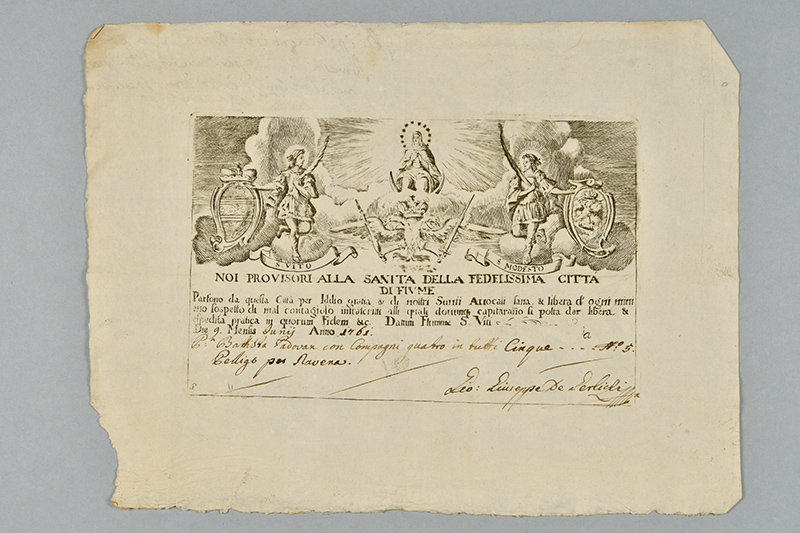 S. VITO
S. MODESTO
NOI PROVISORI ALLA SANITA DELLA FEDELISSIMA CITTA
DI FIVME
Partono da questa Città per Iddio gratia & di nostri Santi Avocati sana, & libera d' ogni mini
mo sospetto di mal contagioso infrascritti alli quali dovunq capitaranno si potra dar libera, &
espedita pratica in quorum Fidem &c. Datum Flumine S. Viti
Die 9. Mensis Junij Anno 1761.
Pn Battista Padovan con Compagni quatro in tutti Cinque - - - No 5.
Pelligo per Ravena.
Giuseppe De